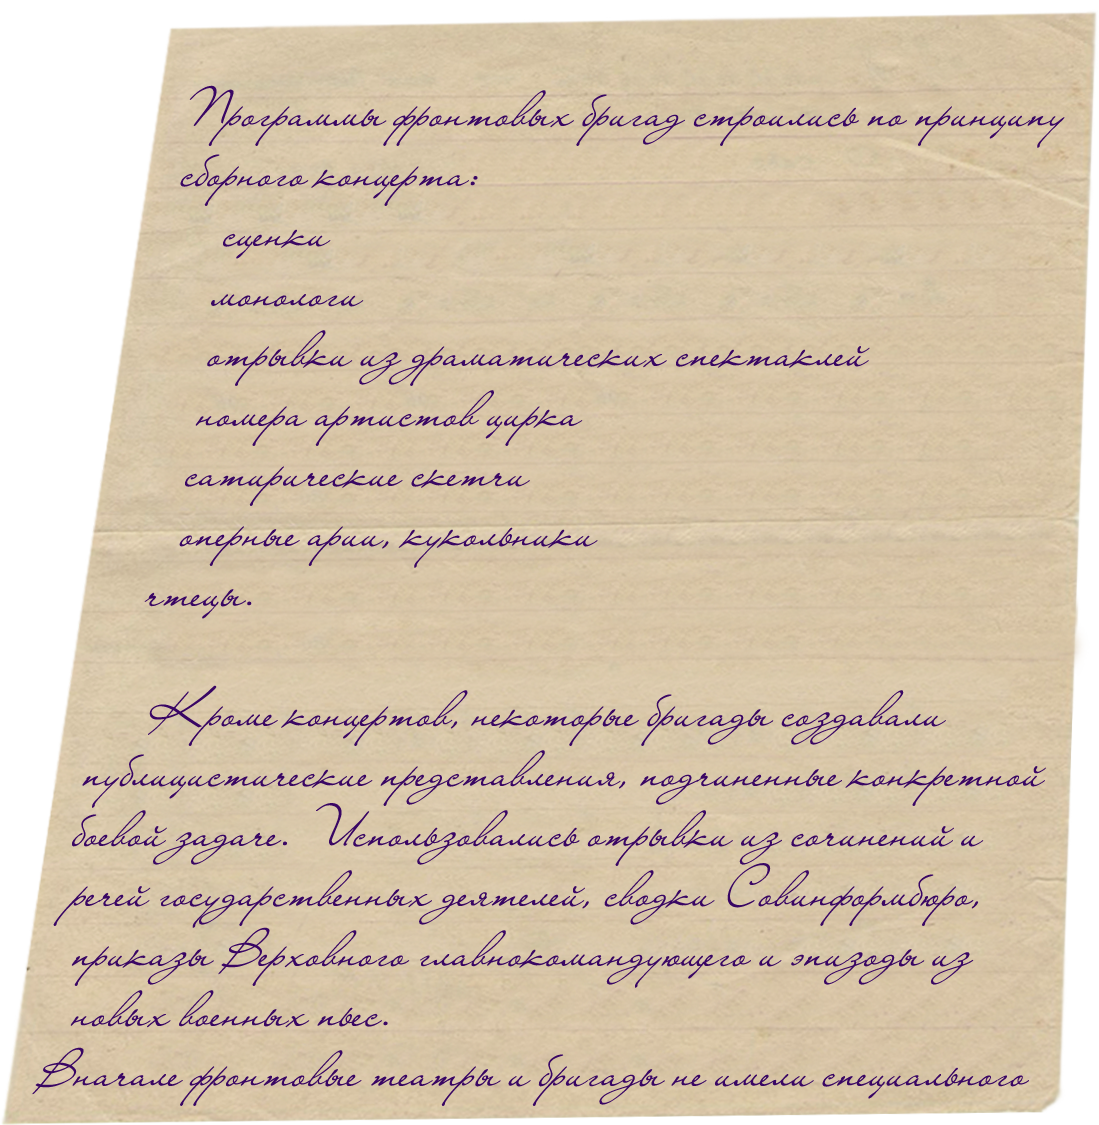 Программы фронтовых бригад строились по принципу
сборного концерта:
сценки
монологи
отрывки из драматических спектаклей
номера артистов цирка
сатирические скетчи
оперные арии, кукольники
чтецы.
Кроме концертов, некоторые бригады создавали
публицистические представления, подчиненные конкретной
боевой задаче. Использовались отрывки из сочинений и
речей государственных деятелей, сводки Совинформбюро,
приказы Верховного главнокомандующего и эпизоды из
новых военных пьес.
Вначале фронтовые театры и бригады не имели специального